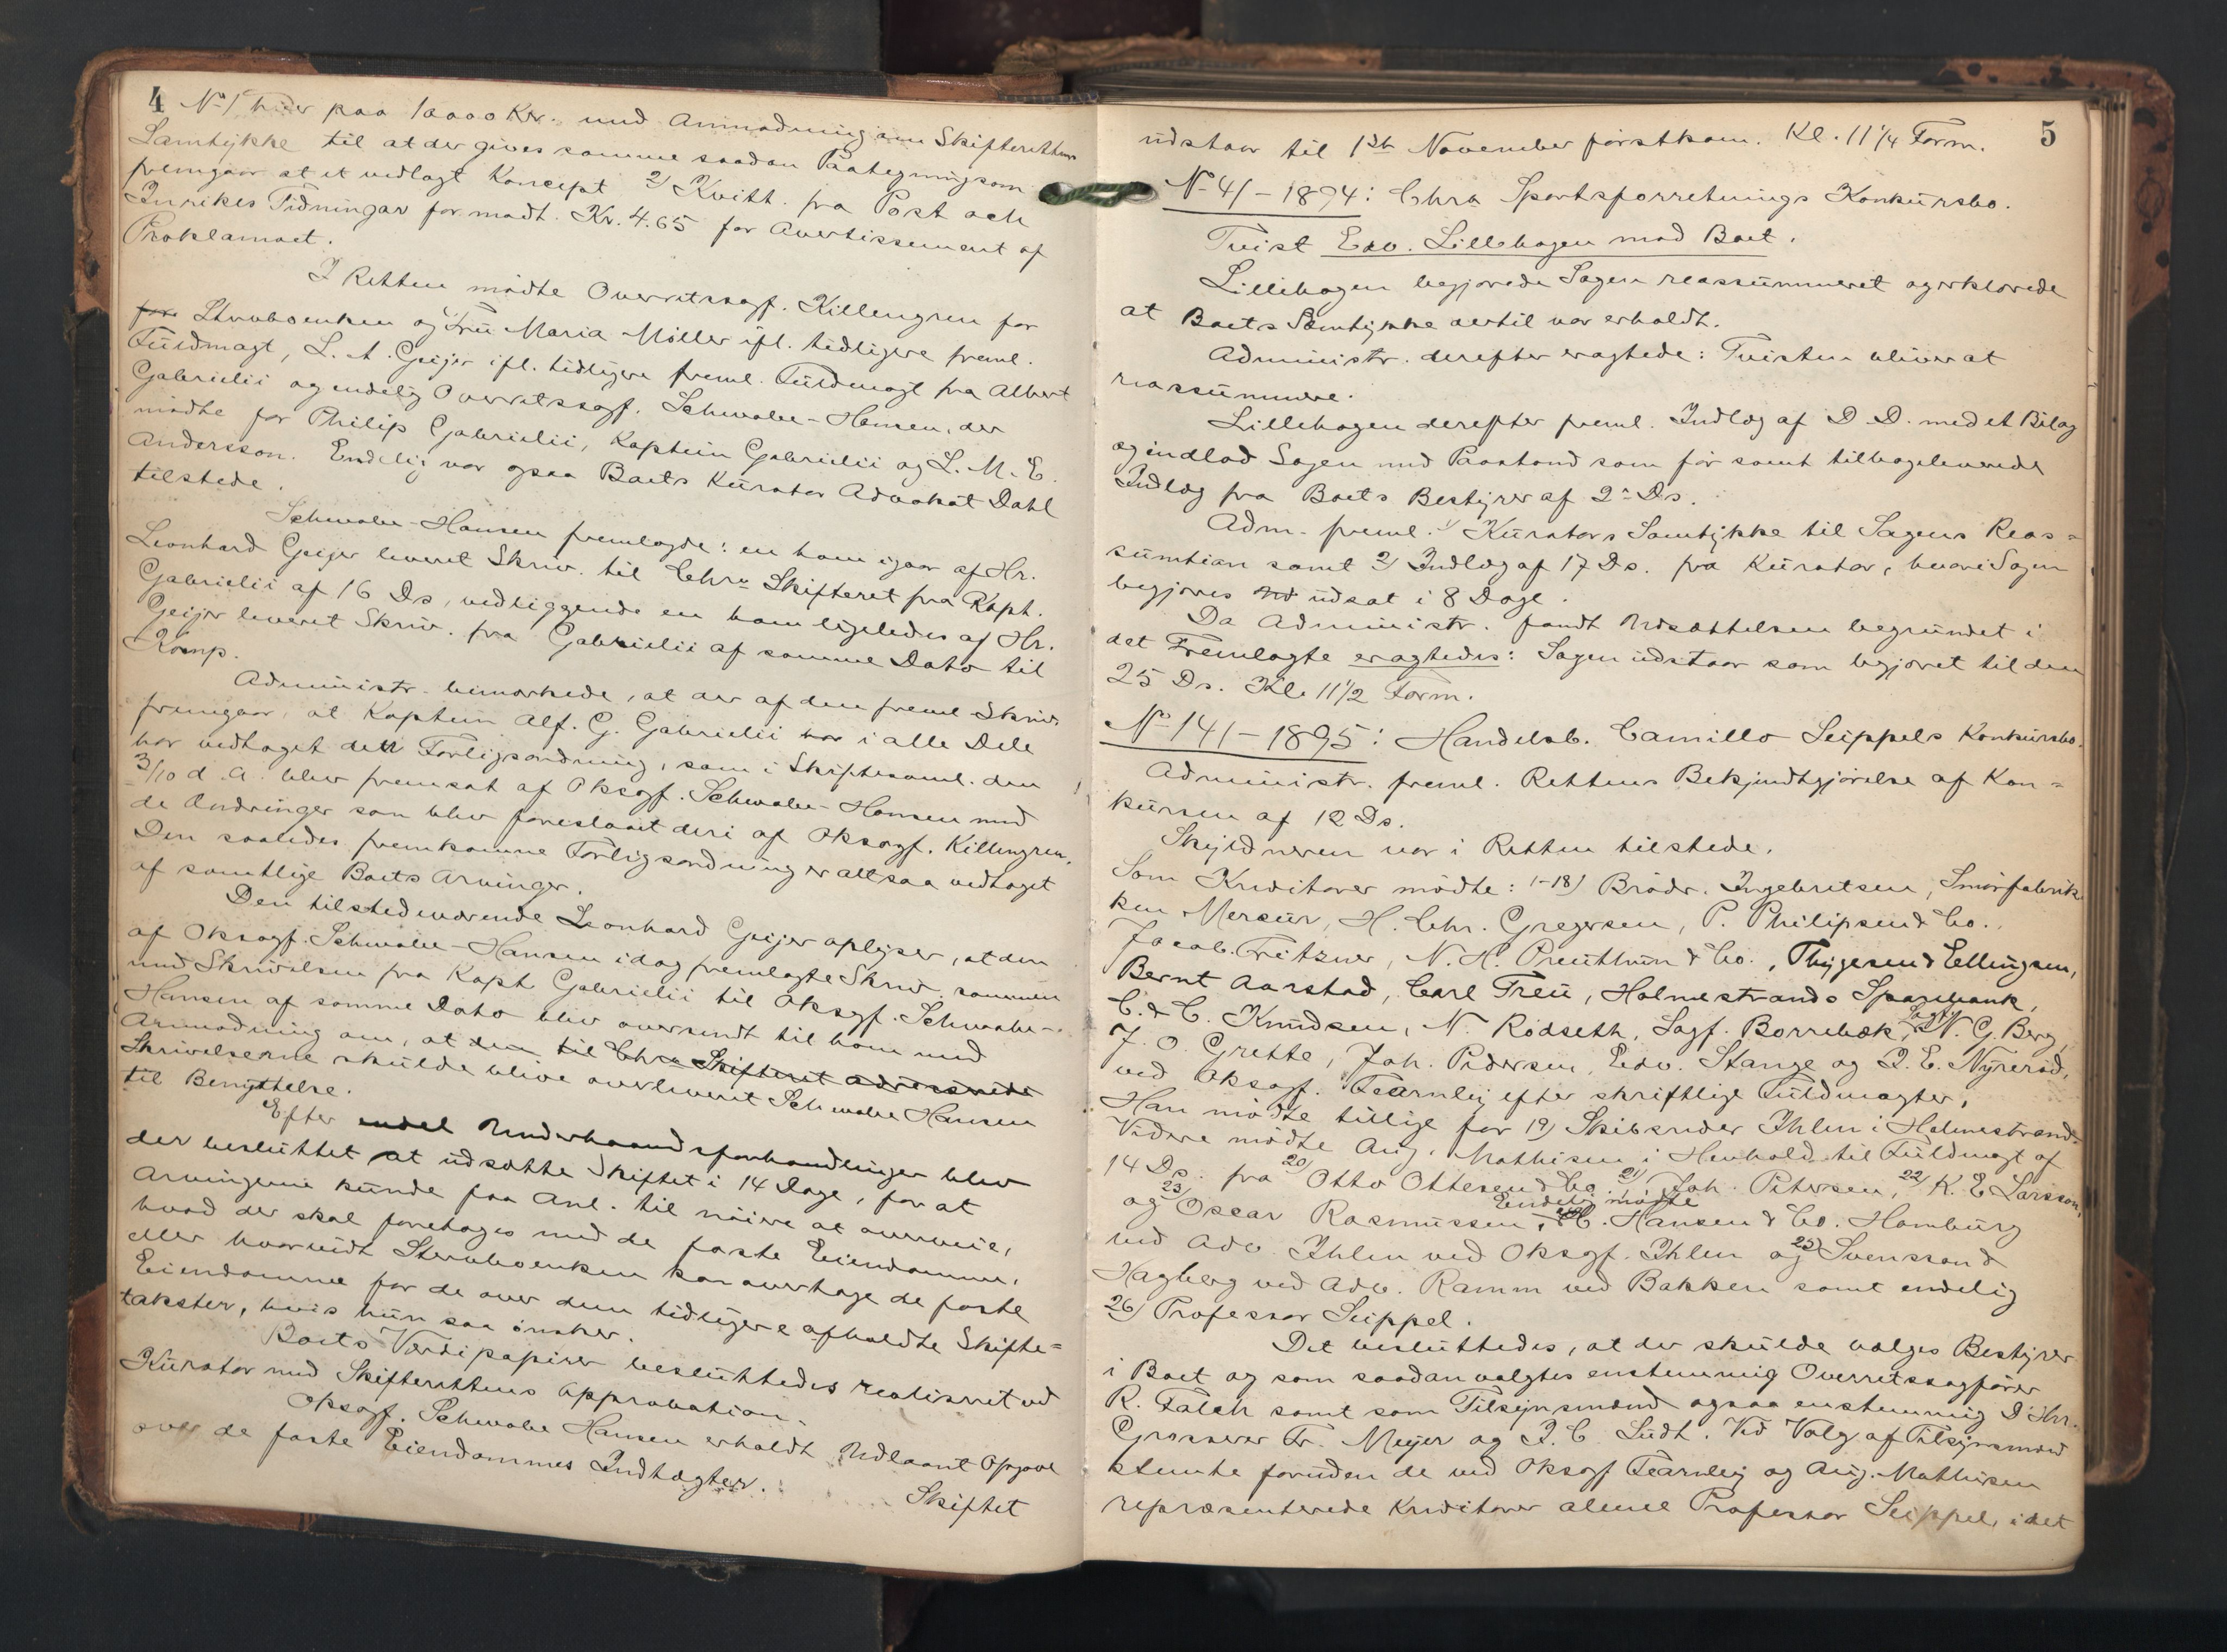 4 No 1 paa 10000 Kr. med Anmodning om Skifterettens
Samtykke til at der gives samme saadan Paategning som
fremgaar at et vedlagt Koncept 2) Kvitt. fra Post och
Inrikes Tidningar for modt. Kr. 4.65 for Avertissement af
Proklamaet.
I Retten mødte Overretssagf. Killengreen for
for Stervboenken og Fru Maria Møller ifl. tidligere freml.
Fuldmagt, L. A. Geijer ifl. tidligere freml. Fuldmagt fra Albert
Gabrielii og endelig Overretssagf. Schwabe-Hansen, der
mødte for Philip Gabrielii, Kaptein Gabrielii og L. M. E.
Andersson. Endelig var ogsaa Boets Kurator Advokat Dahl
tilstede.
Schwabe-Hansen fremlagde: en ham igaar af Hr.
Leonhard Geijer leveret Skriv. til Chra Skifteret fra Kapt.
Gabrielii af 16 Ds, vedliggende en ham ligeledes af Hr.
Geijer leveret Skriv. fra Gabrielii af samme Dato til
Komp.
Administr. bemærkede, at der af den freml Skriv.
fremgaar, at Kaptein Alf. G. Gabrielii har i alle Dele
har vedtaget den Forligsordning, som i Skiftesaml. den
3/10 d. A. blev fremsat af Oksagf. Schwabe-Hansen med
de Ændringer som blev foreslaaet deri af Oksagf. Killengreen.
Den saaledes fremkomne Forligsordning er altsaa vedtaget
af samtlige Boets Arvinger.
Den tilstedeværende Leonhard Geijer oplyser, at den
af Oksagf. Schwabe-Hansen idag fremlagte Skriv. sammen
med Skrivelsen fra Kapt Gabrielii til Oksagf. Schwabe-
Hansen af samme Dato blev oversendt til ham med
Anmodning om, at den til Chra Skifteret adresserede
Skrivelserne skulde blive overleveret Schwabe Hansen
til Benyttelse.
Efter endel Underhaandsforhandlinger blev
der besluttet at udsætte Skiftet i 14 Dage, for at
Arvingerne kunde faa Anl. til nøiere at overveie,
hvad der skal foretages med de faste Eiendomme,
eller hvorvidt Stervboenken kan overtage de faste
Eiendomme for de over dem tidligere afholdte Skifte=
takster, hvis hun saa ønsker.
Boets Værdipapirer besluttedes realiseret ved
Kurator med Skifterettens Approbation.
Oksagf. Schwabe Hansen erholdt Udlaant Opgave
over de faste Eiendommes Indtægter.
Skiftet
5
udstaar til 1ste November førstkom. Kl. 11 1/4 Form.
No 41 - 1894: Chra Sportsforretnings Konkursbo.
Tvist Edv. Lillehagen mod Boet.
Lillehagen begjærede Sagen reassummeret og erklærede
at Boets Samtykke dertil var erholdt.
Administr. derefter eragtede: Tvisten bliver at
reassummere.
Lillehagen derefter freml. Indlæg af D. D. med et Bilag
og indlod Sagen med Paastand som før samt tilbageleverede
Indlæg fra Boets Bestyrer af 2. Ds.
Adm. freml. 1) Kurators Samtykke til Sagens Reas=
sumtion samt 2) Indlæg af 17 Ds. fra Kurator, hvori Sagen
begjæres ud udsat i 8 Dage.
Da Administr. fandt Udsættelsen begrundet i
det Fremlagte eragtedes: Sagen udstaar som begjæret til den
25 Ds. Kl. 11 1/2 Form.
No 141 - 1895: Handelsb. Camillo Seippels Konkursbo.
Administr. freml. Rettens Bekjendtgjørelse af Kon=
kursen af 12 Ds.
Skyldneren var i Retten tilstede.
Som Kreditorer mødte: 1-18) Brødr. Ingebretsen, Smørfabrik
ken Mercur, H. Chr. Gregersen, P. Philipsen & Co.,
Jacob Fritzner, N. H. Preuthun & Co., Thygesen & Ellingsen,
Bernt Aarstad, Carl Treu, Holmestrands Sparebank,
C. & C. Knudsen, N. Rødseth, Sagf. Borrebæk, Sagf. N. G. Berg,
J. O. Grette, Joh. Pedersen, Edv. Stange og P. E. Nyrerød,
ved Oksagf. Fearnley efter skriftlige Fuldmagter.
Han mødte tillige for 19) Skibsreder Ihlen i Holmestrand.
Videre mødte Aug. Mathisen i Henhold til Fuldmagt af
14 Ds. fra 20) Otto Ottesen & Co 21) Joh. Petersen, 22) K. E Larsson,
og 23) Oscar Rasmussen, Endelig mødte C. Hansen & Co. Hamburg
ved Adv. Ihlen ved Oksagf. Ihlen og 25) Svensson &
Hagberg ved Adv. Ramm ved Bakken samt endelig
26) Professor Seippel.
Det besluttedes, at der skulde vælges Bestyrer
i Boet og som saadan valgtes enstemmig Overretssagfører
R. Falch samt som Tilsynsmænd ogsaa enstemmig D'Hrr.
Grosserer Fr. Meyer og P. C. Lüdt. Ved Valg af Tilsynsmænd
stemte foruden de ved Oksagf Fearnley og Aug. Mathisen
repræsenterede Kreditorer alene Professor Seippel, idet